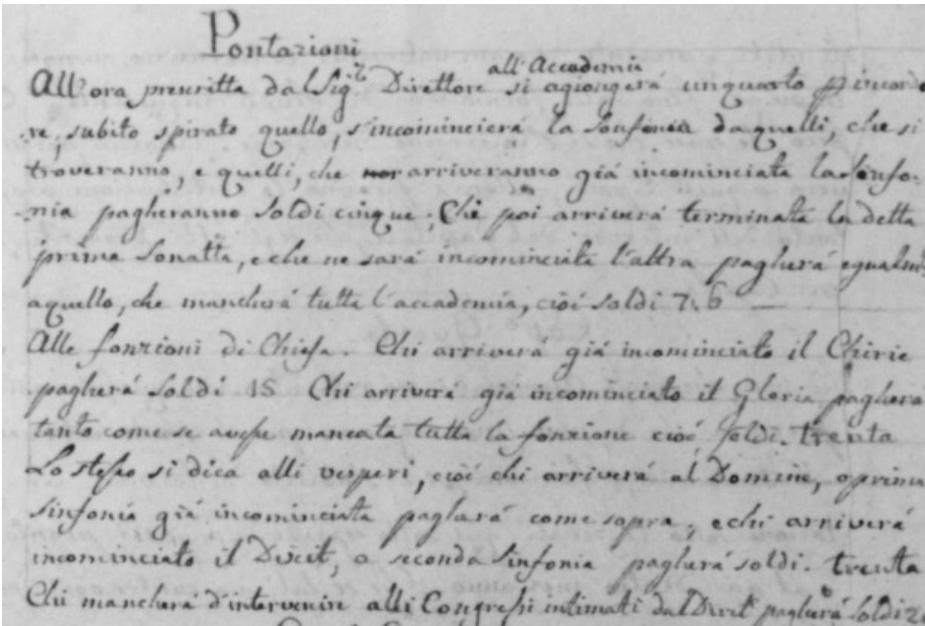 Pontazioni
all'Accademia
All'ora prescritta dal Sig.r Direttore si agiongerà un quarto p incorda
re, subito spirato quello, s'incomincierà la Sonfonia da quelli, che si
troveranno, e quelli, che arriveranno già incominciata la Sinfo-
nia pagheranno Soldi cinque; Chi poi arriverà terminata la detta
prima Sonatta, e che ne sarà incominciata l'altra pagherà egualm.
a quello, che mancherà tutta l'accademia, cioè soldi 7:6
Alle fonzioni di Chiesa. Chi arriverà già incominciato il Chirie
pagherà Soldi 15 Chi arriverà già incominciato il Gloria pagherà
tanto come se avesse mancata tutta la fonzione cioè Soldi. trenta
Lo stesso si dica alli vesperi, cioè chi arriverà al Domine, o prima
sinfonia già incominciata pagharà come sopra; e chi arriverà
incominciato il Dixit, a seconda Sinfonia pagherà soldi. trenta
Chi mancherà d'intervenire alli Congressi intimati dal Dirett. pagherà Soldi